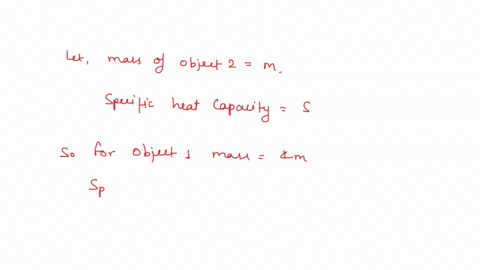 Let, mass of object 2 = m.
Specific heat Capacity = S
So for object 1 mass = m
Sp